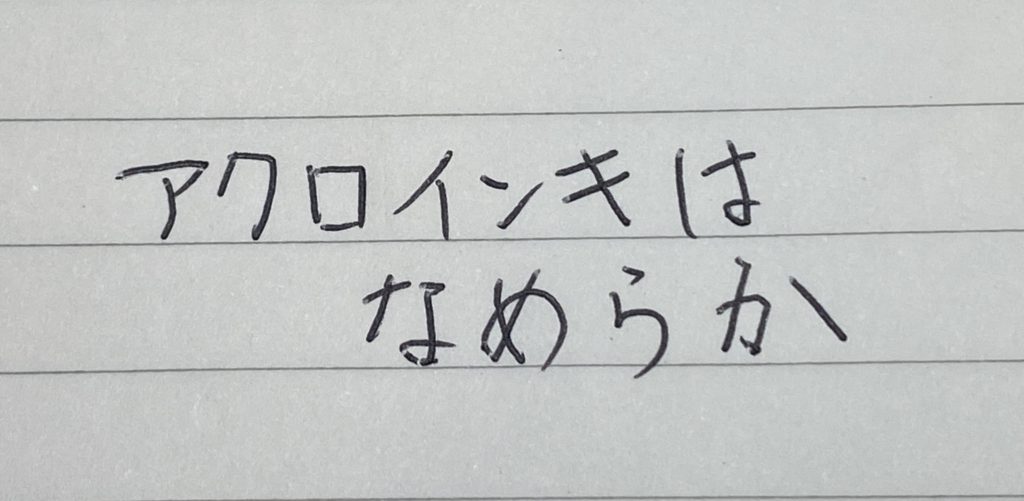 アクロインキは
なめらか